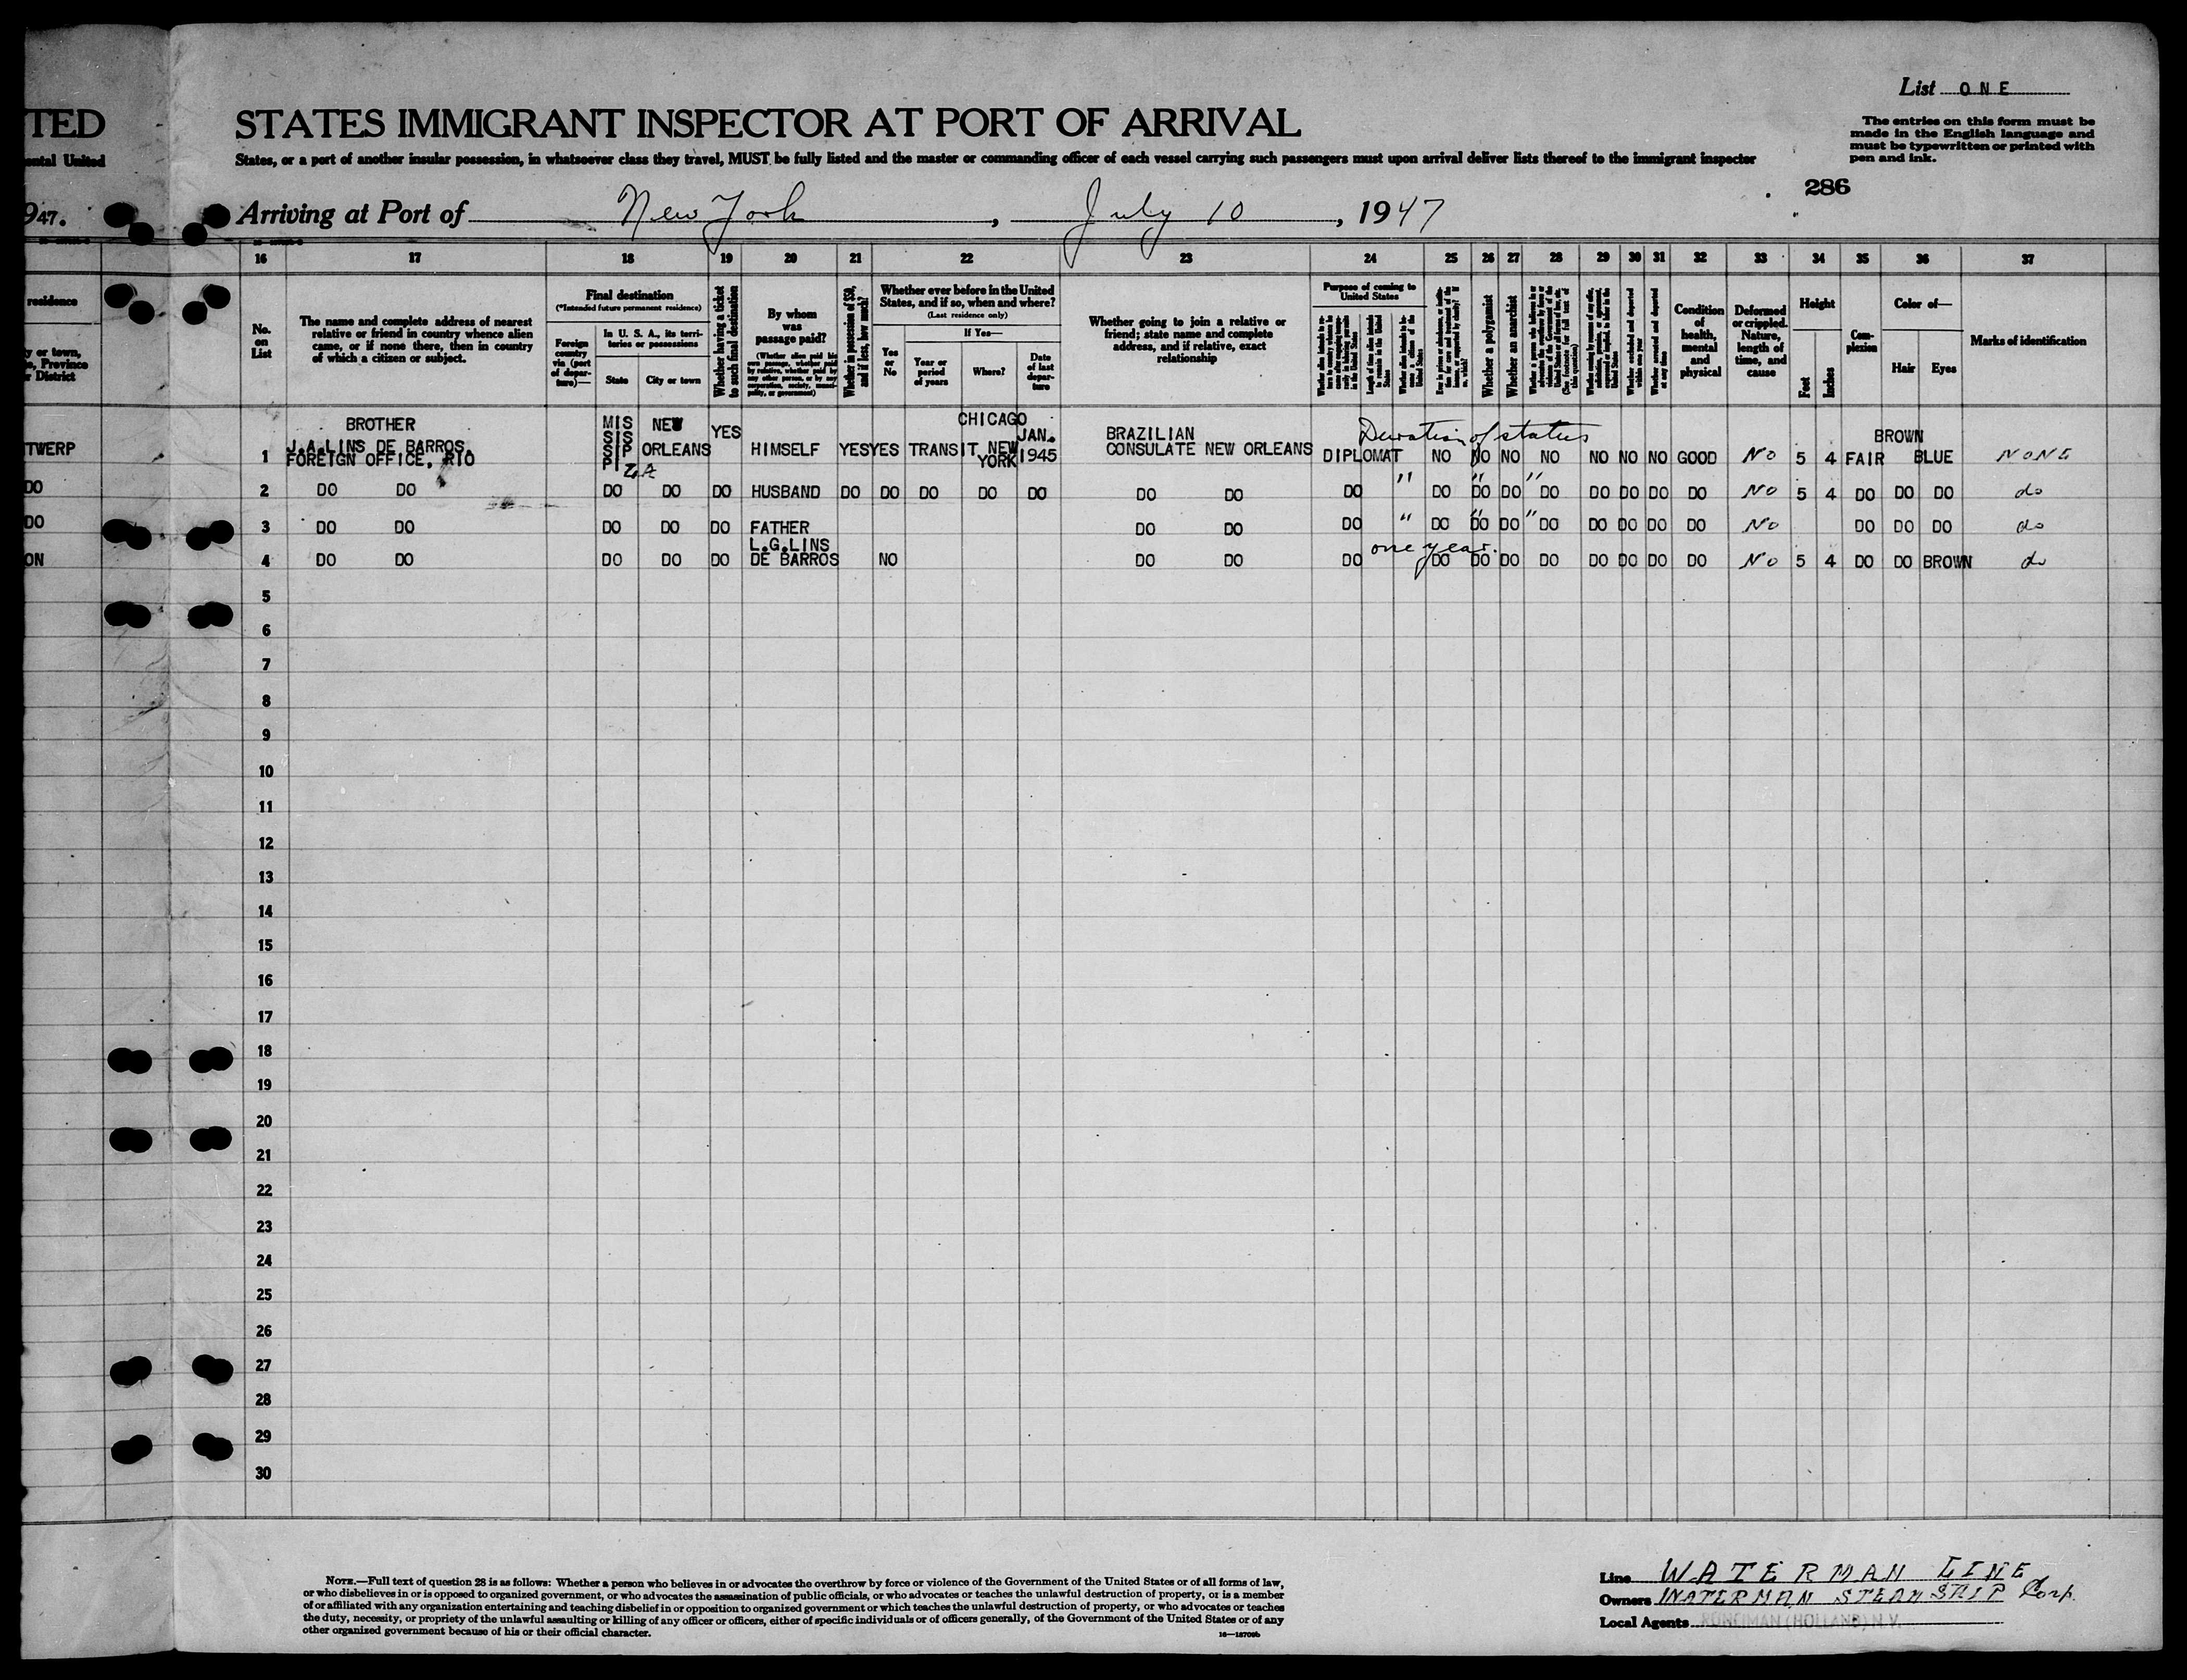 List ONE
TED STATES IMMIGRANT INSPECTOR AT PORT OF ARRIVAL
The entries on this form must be
made in the English language and
must be typewritten or printed with
pen and ink.
ental United States, or a port of another insular possession, in whatsoever class they travel, MUST be fully listed and the master or commanding officer of each vessel carrying such passengers must upon arrival deliver lists thereof to the immigrant inspector
286
947. Arriving at Port of New York, July 10, 1947
16 17 18 19 20 21 22 23 24 25 26 27 28 29 30 31 32 33 34 35 36 37
residence
y or town,
Province
District
No.
on
List
The name and complete address of nearest
relative or friend in country whence alien
came, or if none there, then in country
of which a citizen or subject.
Final destination
(*Intended future permanent residence)
Foreign
country
via (port
of depar-
ture)—
In U. S. A., its terri-
tories or possessions
State City or town
Whether having a ticket
to such final destination
By whom
was
passage paid?
(Whether alien paid his
own passage, whether paid
by relative, whether paid by
any other person, or by any
corporation, society, munici-
pality, or government)
Whether in possession of $50,
and if less, how much?
Whether ever before in the United
States, and if so, when and where?
(Last residence only)
Yes
or
No
If Yes—
Year or
period
of years
Where?
Date
of last
depar-
ture
Whether going to join a relative or
friend; state name and complete
address, and if relative, exact
relationship
Purpose of coming to
United States
Length of time alien intends
to remain in the United
States
Whether a polygamist
Whether an anarchist
Condition
of
health,
mental
and
physical
Deformed
or crippled.
Nature,
length of
time, and
cause
Height
Feet
Inches
Com-
plexion
Color of—
Hair Eyes
Marks of identification
TWERP 1 BROTHER
J.A.LINS DE BARROS.
FOREIGN OFFICE, RIO
MIS
SIS
SIP
PI LA
NEW
ORLEANS
YES HIMSELF YES YES TRANSIT
CHICAGO
NEW
YORK
JAN.
1945
BRAZILIAN
CONSULATE NEW ORLEANS
Duration of status
DIPLOMAT NO NO NO NO NO NO NO GOOD No 5 4 FAIR BROWN BLUE NONE
DO 2 DO DO DO DO DO HUSBAND DO DO DO DO DO DO DO DO " DO " DO DO " DO DO DO DO DO No 5 4 DO DO DO do
DO 3 DO DO DO DO DO FATHER DO DO DO " DO " DO DO " DO DO DO DO DO No DO DO DO do
ON 4 DO DO DO DO DO L.G.LINS
DE BARROS NO DO DO DO one year. DO DO DO DO DO DO DO DO No 5 4 DO DO BROWN do
5
6
7
8
9
10
11
12
13
14
15
16
17
18
19
20
21
22
23
24
25
26
27
28
29
30
NOTE.—Full text of question 28 is as follows: Whether a person who believes in or advocates the overthrow by force or violence of the Government of the United States or of all forms of law,
or who disbelieves in or is opposed to organized government, or who advocates the assassination of public officials, or who advocates or teaches the unlawful destruction of property, or is a member
of or affiliated with any organization entertaining and teaching disbelief in or opposition to organized government or which teaches the unlawful destruction of property, or who advocates or teaches
the duty, necessity, or propriety of the unlawful assaulting or killing of any officer or officers, either of specific individuals or of officers generally, of the Government of the United States or of any
other organized government because of his or their official character.
Line WATERMAN LINE
Owners WATERMAN STEAM SHIP Corp.
Local Agents RUNCIMAN (HOLLAND) N.V.